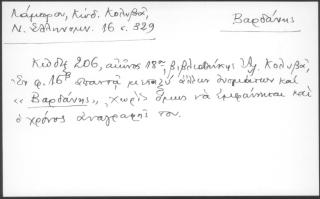 Λάμπρου, Κώδ. Κολυβᾶ,
Ν. Ἑλληνομν. 16 σ. 329
Βαρδάνης
Κῶδιξ 206, αἰῶνος 18ου, βιβλιοθήκης Ἀλ. Κολυβᾶ,
Ἐν φ. 16β ἀπαντᾷ μεταξὺ ἄλλων ὀνομάτων καὶ
«Βαρδάνης», χωρὶς ὅμως νὰ ἐμφαίνηται καὶ
ὁ χρόνος ἀναγραφῆς του.